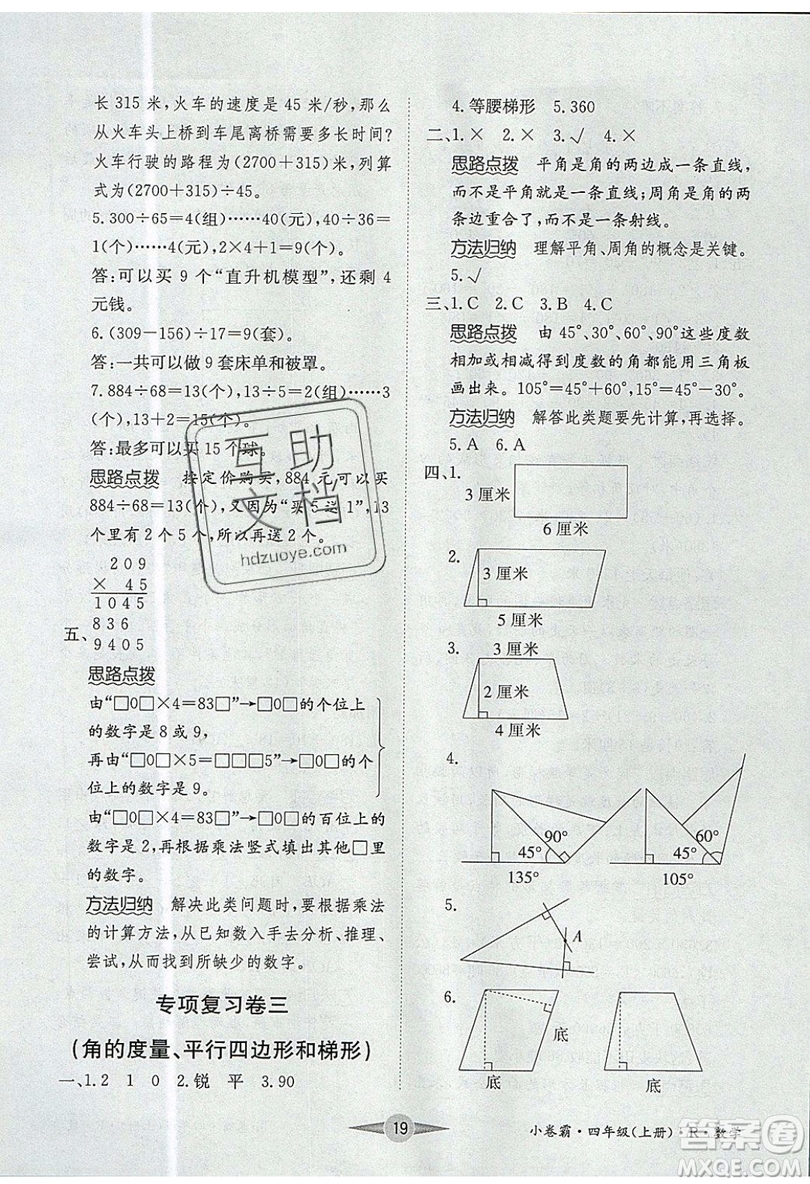 长 315 米,火车的速度是 45 米/秒,那么
从火车头上桥到车尾离桥需要多长时间?
火车行驶的路程为(2700+315)米,列算
式为(2700+315)÷45。
5.300÷65=4(组)……40(元),40÷36=
1(个)……4(元),2×4+1=9(个)
答:可以买 9 个“直升机模型”,还剩 4
元钱。
6.(309-156)÷17=9(套)。
答:一共可以做 9 套床单和被罩。
7.884÷68=13(个),13÷5=2(组)……3
(个),13+2=15(个)
答:最多可以买 15 个球。
思路点拨 按定价购买,884 元可以买
884÷68=13(个),又因为“买 5 送 1”,13
个里有 2 个 5 个,所以再送 2 个。
五、
209
× 45
1045
836
9405
思路点拨
由“□0□×4=83□”→□0□的个位上
的数字是 8 或 9,
再由“□0□×5=□□□□”→□0□的个
位上的数字是 9。
由“□0□×4=83□”→□0□的百位上
的数字是 2,再根据乘法竖式填出其他□里
的数字。
方法归纳 解决此类问题时,要根据乘法
的计算方法,从已知数入手去分析、推理、
尝试,从而找到所缺少的数字。
专项复习卷三
(角的度量、平行四边形和梯形)
一、1.2 1 0 2.锐 平 3.90
4.等腰梯形 5.360
二、1.× 2.× 3.√ 4.×
思路点拨 平角是角的两边成一条直线,
而不是平角就是一条直线;周角是角的两
条边重合了,而不是一条射线。
方法归纳 理解平角、周角的概念是关键。
5.√
三、1.C 2.C 3.B 4.C
思路点拨 由 45°、30°、60°、90°这些度数
相加或相减得到度数的角都能用三角板
画出来。105°=45°+60°,15°=45°-30°。
方法归纳 解答此类题要先计算,再选择。
5.A 6.A
四、1.
3 厘米
6 厘米
2.
3 厘米
5 厘米
3.
3 厘米
2 厘米
4 厘米
4.
90°
45°
135°
60°
45°
105°
5.
A
6.
底
底
底
19
小卷霸·四年级(上册)·R·数学
互助
文档
hdzuoye.com
答案圈
MXQE.COM